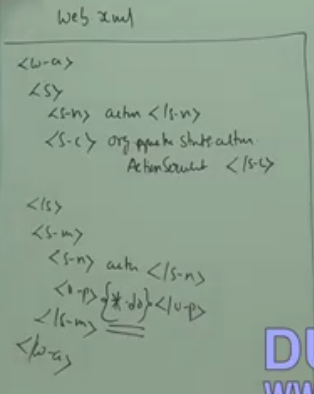 Web.xml
<w-a>
<s>
<s-n> action </s-n>
<s-c> org.apache.struts.action.
ActionServlet </s-c>
</s>
<s-m>
<s-n> action </s-n>
<u-p> *.do </u-p>
</s-m>
</w-a>
DU
WWW